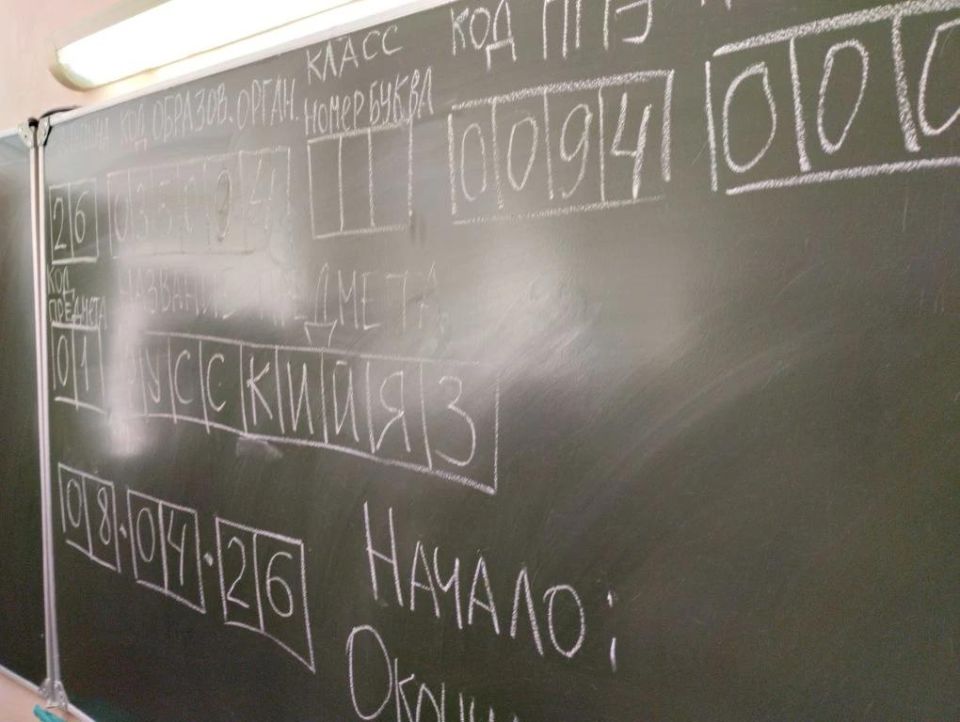 КОД ОБРАЗОВ. ОРГАН. КЛАСС КОД ППЭ
НОМЕР БУКВА
26 0094 000
КОД
ПРЕДМЕТА НАЗВАНИЕ ПРЕДМЕТА
01 РУССКИЙ ЯЗ
08.04.26 НАЧАЛО: